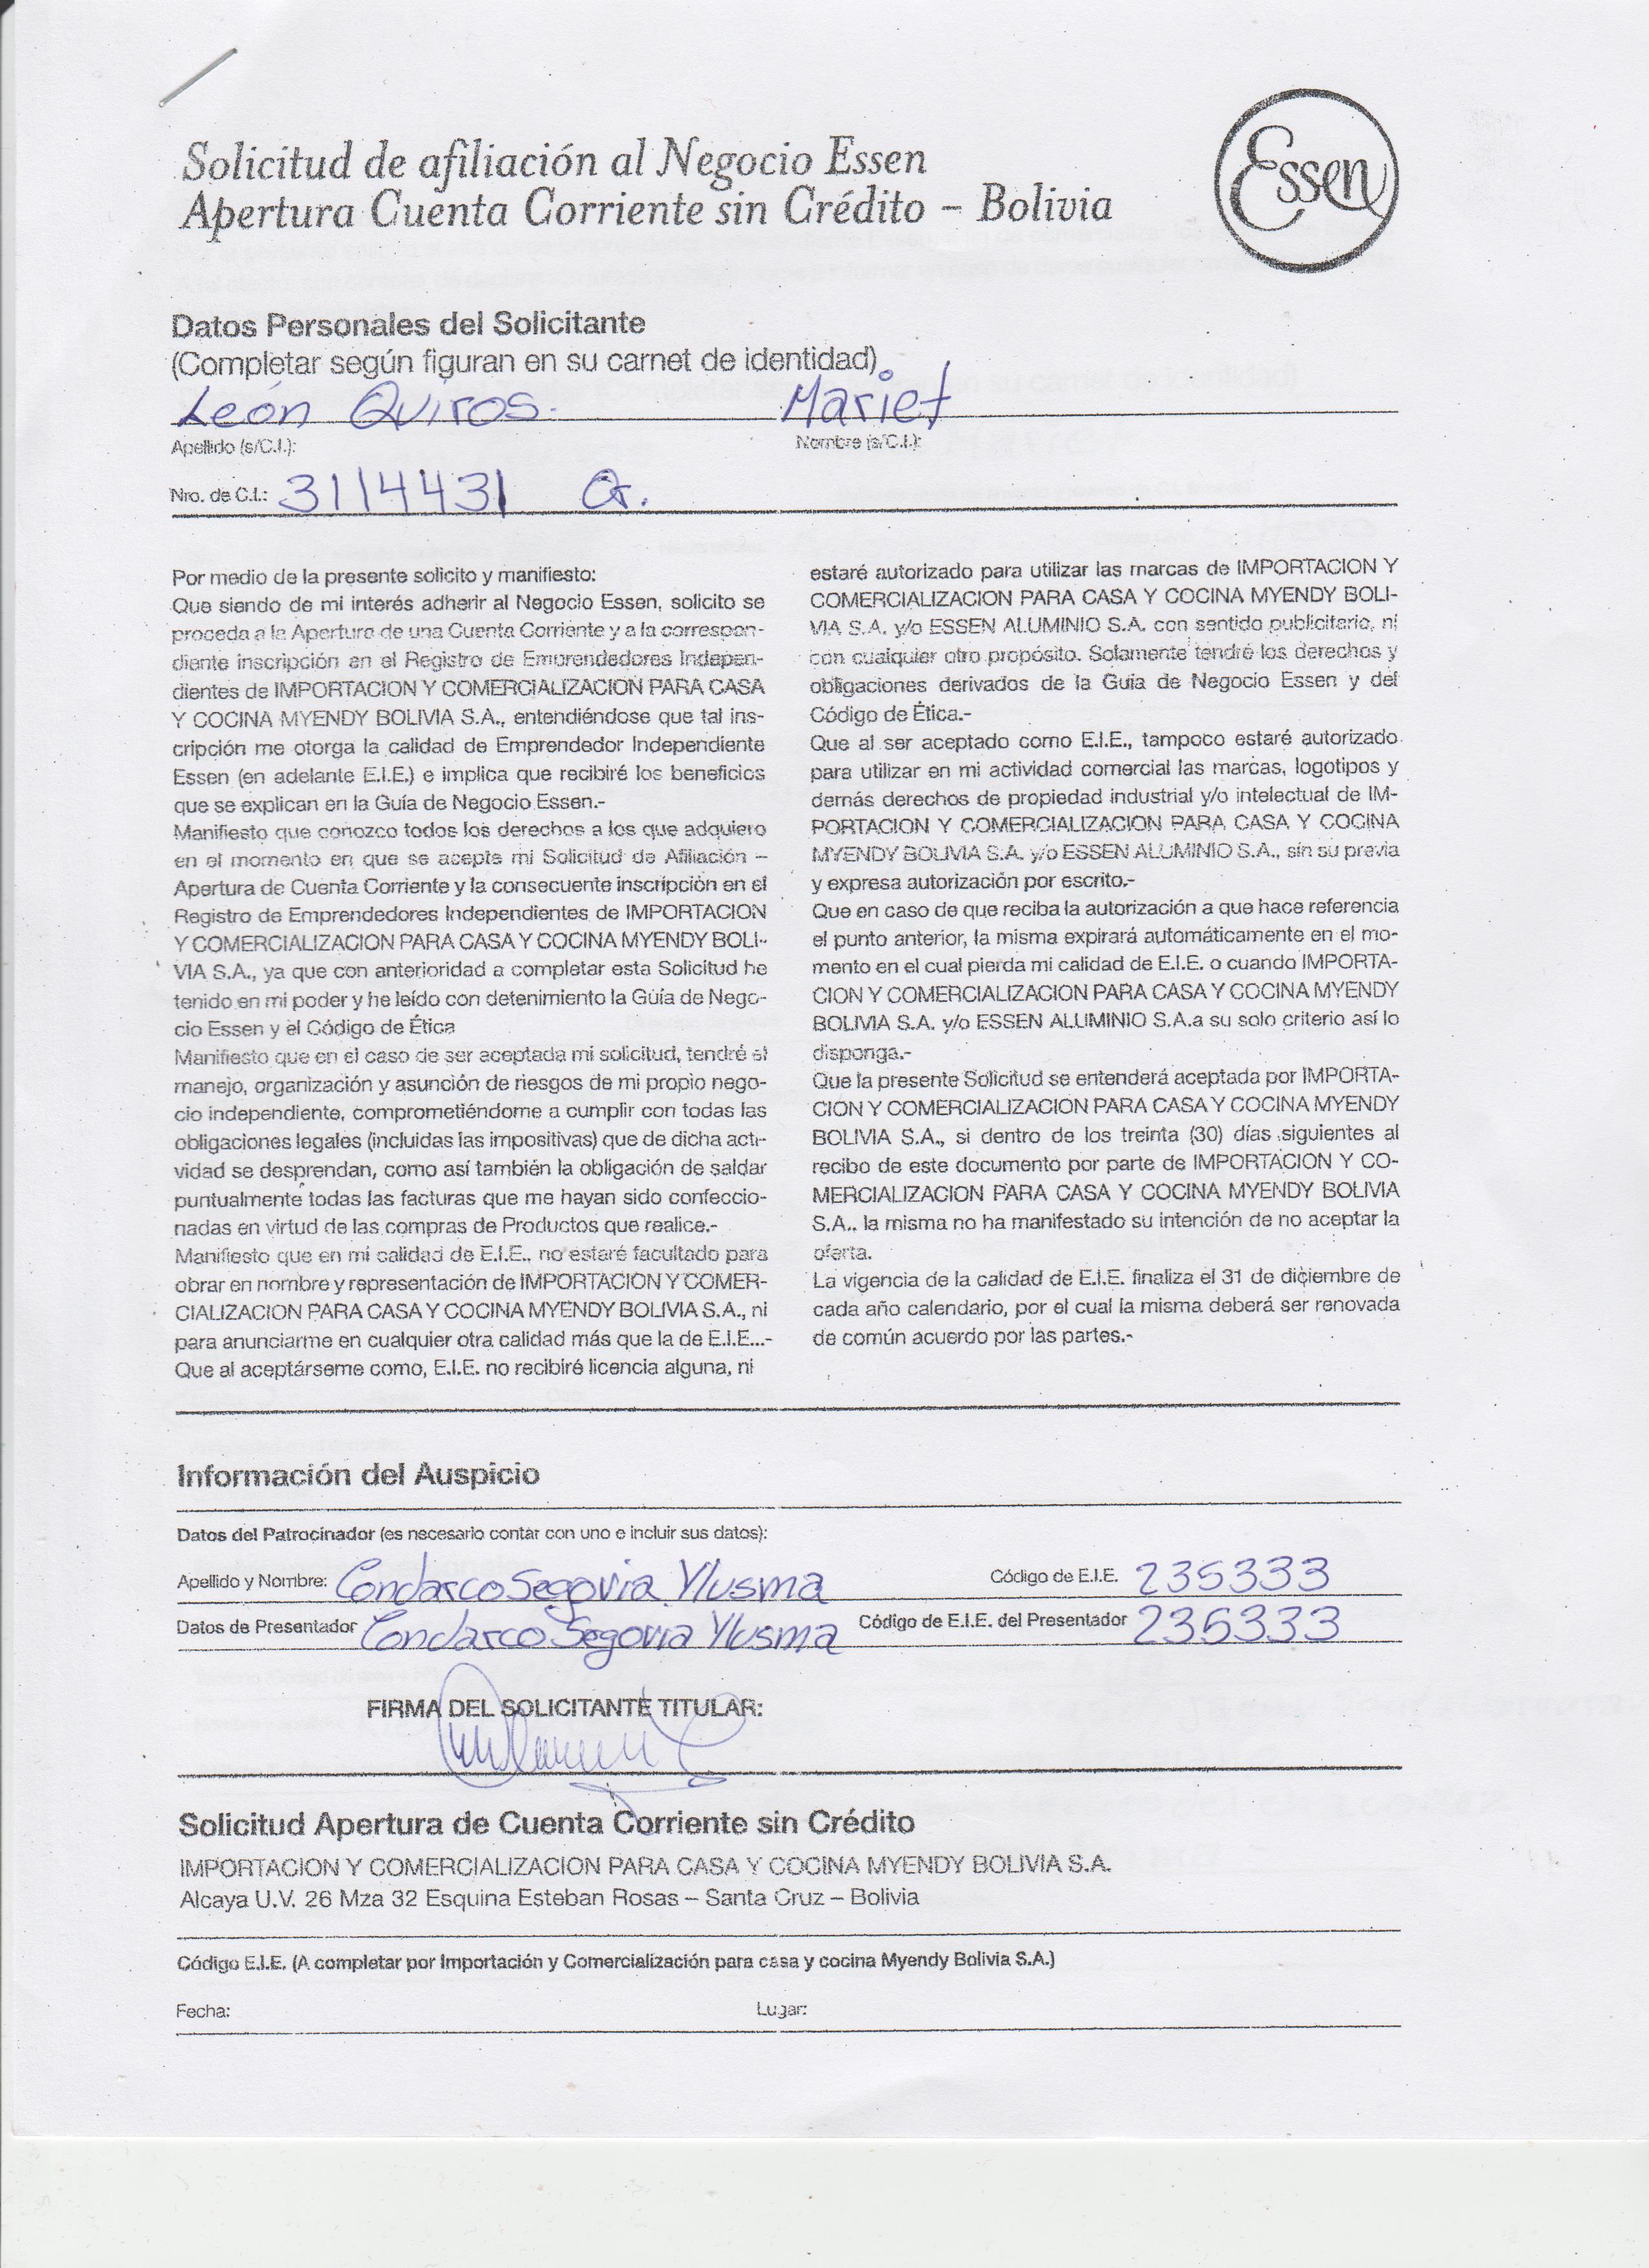 Solicitud de afiliación al Negocio Essen
Apertura Cuenta Corriente sin Crédito – Bolivia
Essen
Datos Personales del Solicitante
(Completar según figuran en su carnet de identidad)
León Quiros. Marief
Apellido (s/C.I.): Nombre (s/C.I.):
Nro. de C.I.: 3114431 Or.
Por medio de la presente solicito y manifiesto:
Que siendo de mi interés adherir al Negocio Essen, solicito se
proceda a la Apertura de una Cuenta Corriente y a la correspon-
diente inscripción en el Registro de Emprendedores Indepen-
dientes de IMPORTACION Y COMERCIALIZACION PARA CASA
Y COCINA MYENDY BOLIVIA S.A., entendiéndose que tal ins-
cripción me otorga la calidad de Emprendedor Independiente
Essen (en adelante E.I.E.) e implica que recibiré los beneficios
que se explican en la Guía de Negocio Essen.-
Manifiesto que conozco todos los derechos a los que adquiero
en el momento en que se acepte mi Solicitud de Afiliación –
Apertura de Cuenta Corriente y la consecuente inscripción en el
Registro de Emprendedores Independientes de IMPORTACION
Y COMERCIALIZACION PARA CASA Y COCINA MYENDY BOLI-
VIA S.A., ya que con anterioridad a completar esta Solicitud he
tenido en mi poder y he leído con detenimiento la Guía de Nego-
cio Essen y el Código de Ética
Manifiesto que en el caso de ser aceptada mi solicitud, tendré el
manejo, organización y asunción de riesgos de mi propio nego-
cio independiente, comprometiéndome a cumplir con todas las
obligaciones legales (incluidas las impositivas) que de dicha acti-
vidad se desprendan, como así también la obligación de saldar
puntualmente todas las facturas que me hayan sido confeccio-
nadas en virtud de las compras de Productos que realice.-
Manifiesto que en mi calidad de E.I.E., no estaré facultado para
obrar en nombre y representación de IMPORTACION Y COMER-
CIALIZACION PARA CASA Y COCINA MYENDY BOLIVIA S.A., ni
para anunciarme en cualquier otra calidad más que la de E.I.E...-
Que al aceptárseme como, E.I.E. no recibiré licencia alguna, ni
estaré autorizado para utilizar las marcas de IMPORTACION Y
COMERCIALIZACION PARA CASA Y COCINA MYENDY BOLI-
VIA S.A. y/o ESSEN ALUMINIO S.A. con sentido publicitario, ni
con cualquier otro propósito. Solamente tendré los derechos y
obligaciones derivados de la Guía de Negocio Essen y del
Código de Ética.-
Que al ser aceptado como E.I.E., tampoco estaré autorizado
para utilizar en mi actividad comercial las marcas, logotipos y
demás derechos de propiedad industrial y/o intelectual de IM-
PORTACION Y COMERCIALIZACION PARA CASA Y COCINA
MYENDY BOLIVIA S.A. y/o ESSEN ALUMINIO S.A., sin su previa
y expresa autorización por escrito.-
Que en caso de que reciba la autorización a que hace referencia
el punto anterior, la misma expirará automáticamente en el mo-
mento en el cual pierda mi calidad de E.I.E. o cuando IMPORTA-
CION Y COMERCIALIZACION PARA CASA Y COCINA MYENDY
BOLIVIA S.A. y/o ESSEN ALUMINIO S.A.a su solo criterio así lo
disponga.-
Que la presente Solicitud se entenderá aceptada por IMPORTA-
CION Y COMERCIALIZACION PARA CASA Y COCINA MYENDY
BOLIVIA S.A., si dentro de los treinta (30) días siguientes al
recibo de este documento por parte de IMPORTACION Y CO-
MERCIALIZACION PARA CASA Y COCINA MYENDY BOLIVIA
S.A.. la misma no ha manifestado su intención de no aceptar la
oferta.
La vigencia de la calidad de E.I.E. finaliza el 31 de diciembre de
cada año calendario, por el cual la misma deberá ser renovada
de común acuerdo por las partes.-
Información del Auspicio
Datos del Patrocinador (es necesario contar con uno e incluir sus datos):
Apellido y Nombre: Condarco Segovia Ylusma Código de E.I.E. 235333
Datos de Presentador Condarco Segovia Ylusma Código de E.I.E. del Presentador 235333
FIRMA DEL SOLICITANTE TITULAR:
Solicitud Apertura de Cuenta Corriente sin Crédito
IMPORTACION Y COMERCIALIZACION PARA CASA Y COCINA MYENDY BOLIVIA S.A.
Alcaya U.V. 26 Mza 32 Esquina Esteban Rosas – Santa Cruz – Bolivia
Código E.I.E. (A completar por Importación y Comercialización para casa y cocina Myendy Bolivia S.A.)
Fecha: Lugar: